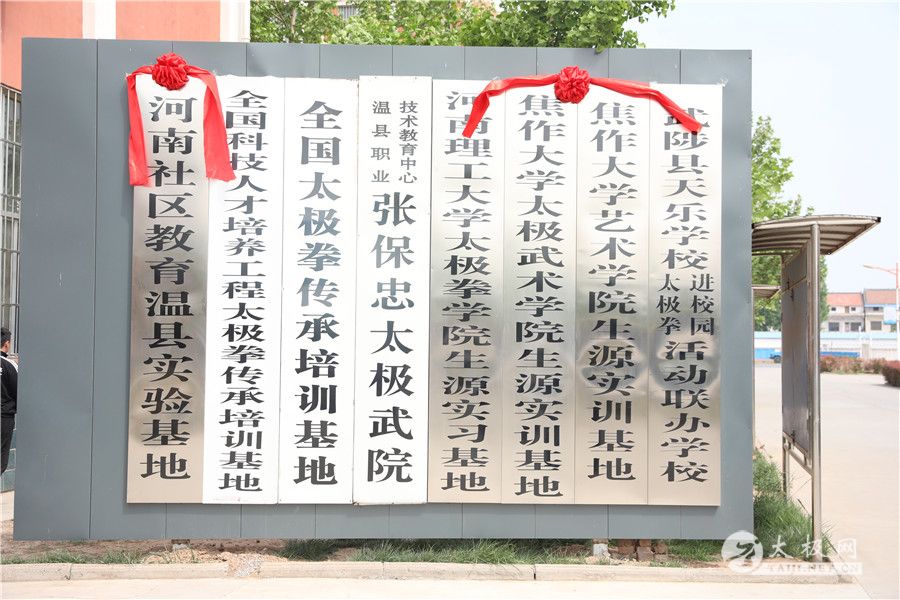 河南社区教育温县实验基地
全国科技人才培养工程太极拳传承培训基地
全国太极拳传承培训基地
温县职业
技术教育中心
张保忠太极武院
河南理工大学太极拳学院生源实习基地
焦作大学太极武术学院生源实训基地
焦作大学艺术学院生源实训基地
武陟县天乐学校
太极拳
进校园
活动联办学校
太极网
TAIJI.NET.CN